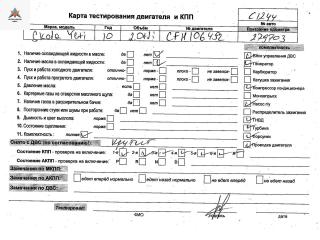 Карта тестирования двигателя и КПП
С1244
№ авто
Марка, модель Год Объём № двигателя Показание одометра
Skoda Yeti 10 2.0Di CFH 06452 229703
1. Наличие охлаждающей жидкости в масле: да нет
2. Наличие масла в охлаждающей жидкости: да нет
3. Пуск и работа холодного двигателя: отлично норма плохо не завелся
4. Пуск и работа прогретого двигателя: отлично норма плохо не завелся
5. Давление масла: есть нет
6. Картерные газы из отверстия масляного щупа: да нет
7. Наличие газов в расширительном бачке: да нет
8. Посторонние стуки или шумы при работе: да нет
9. Дымность и цвет выхлопа: норма
10. Состояние сцепления: норма
11. Комплектность: полная
Блок управления ДВС
Генератор
Карбюратор
Катушка зажигания
Компрессор кондиционера
Насос г/у
Распределитель зажигания
ТНВД
Турбина
Форсунки
Проводка двигателя
Снято с ДВС (до тестирования):
Состояние КПП - проверка на включение: 1-я 2-я 3-я 4-я 5-я
Состояние АКПП - проверка на включение: P R N D
Замечания по МКПП: едет вперёд нормально едет назад нормально не едет вперёд не едет назад
Замечания по АКПП:
Замечания по ДВС:
Тестировал:
ФИО дата